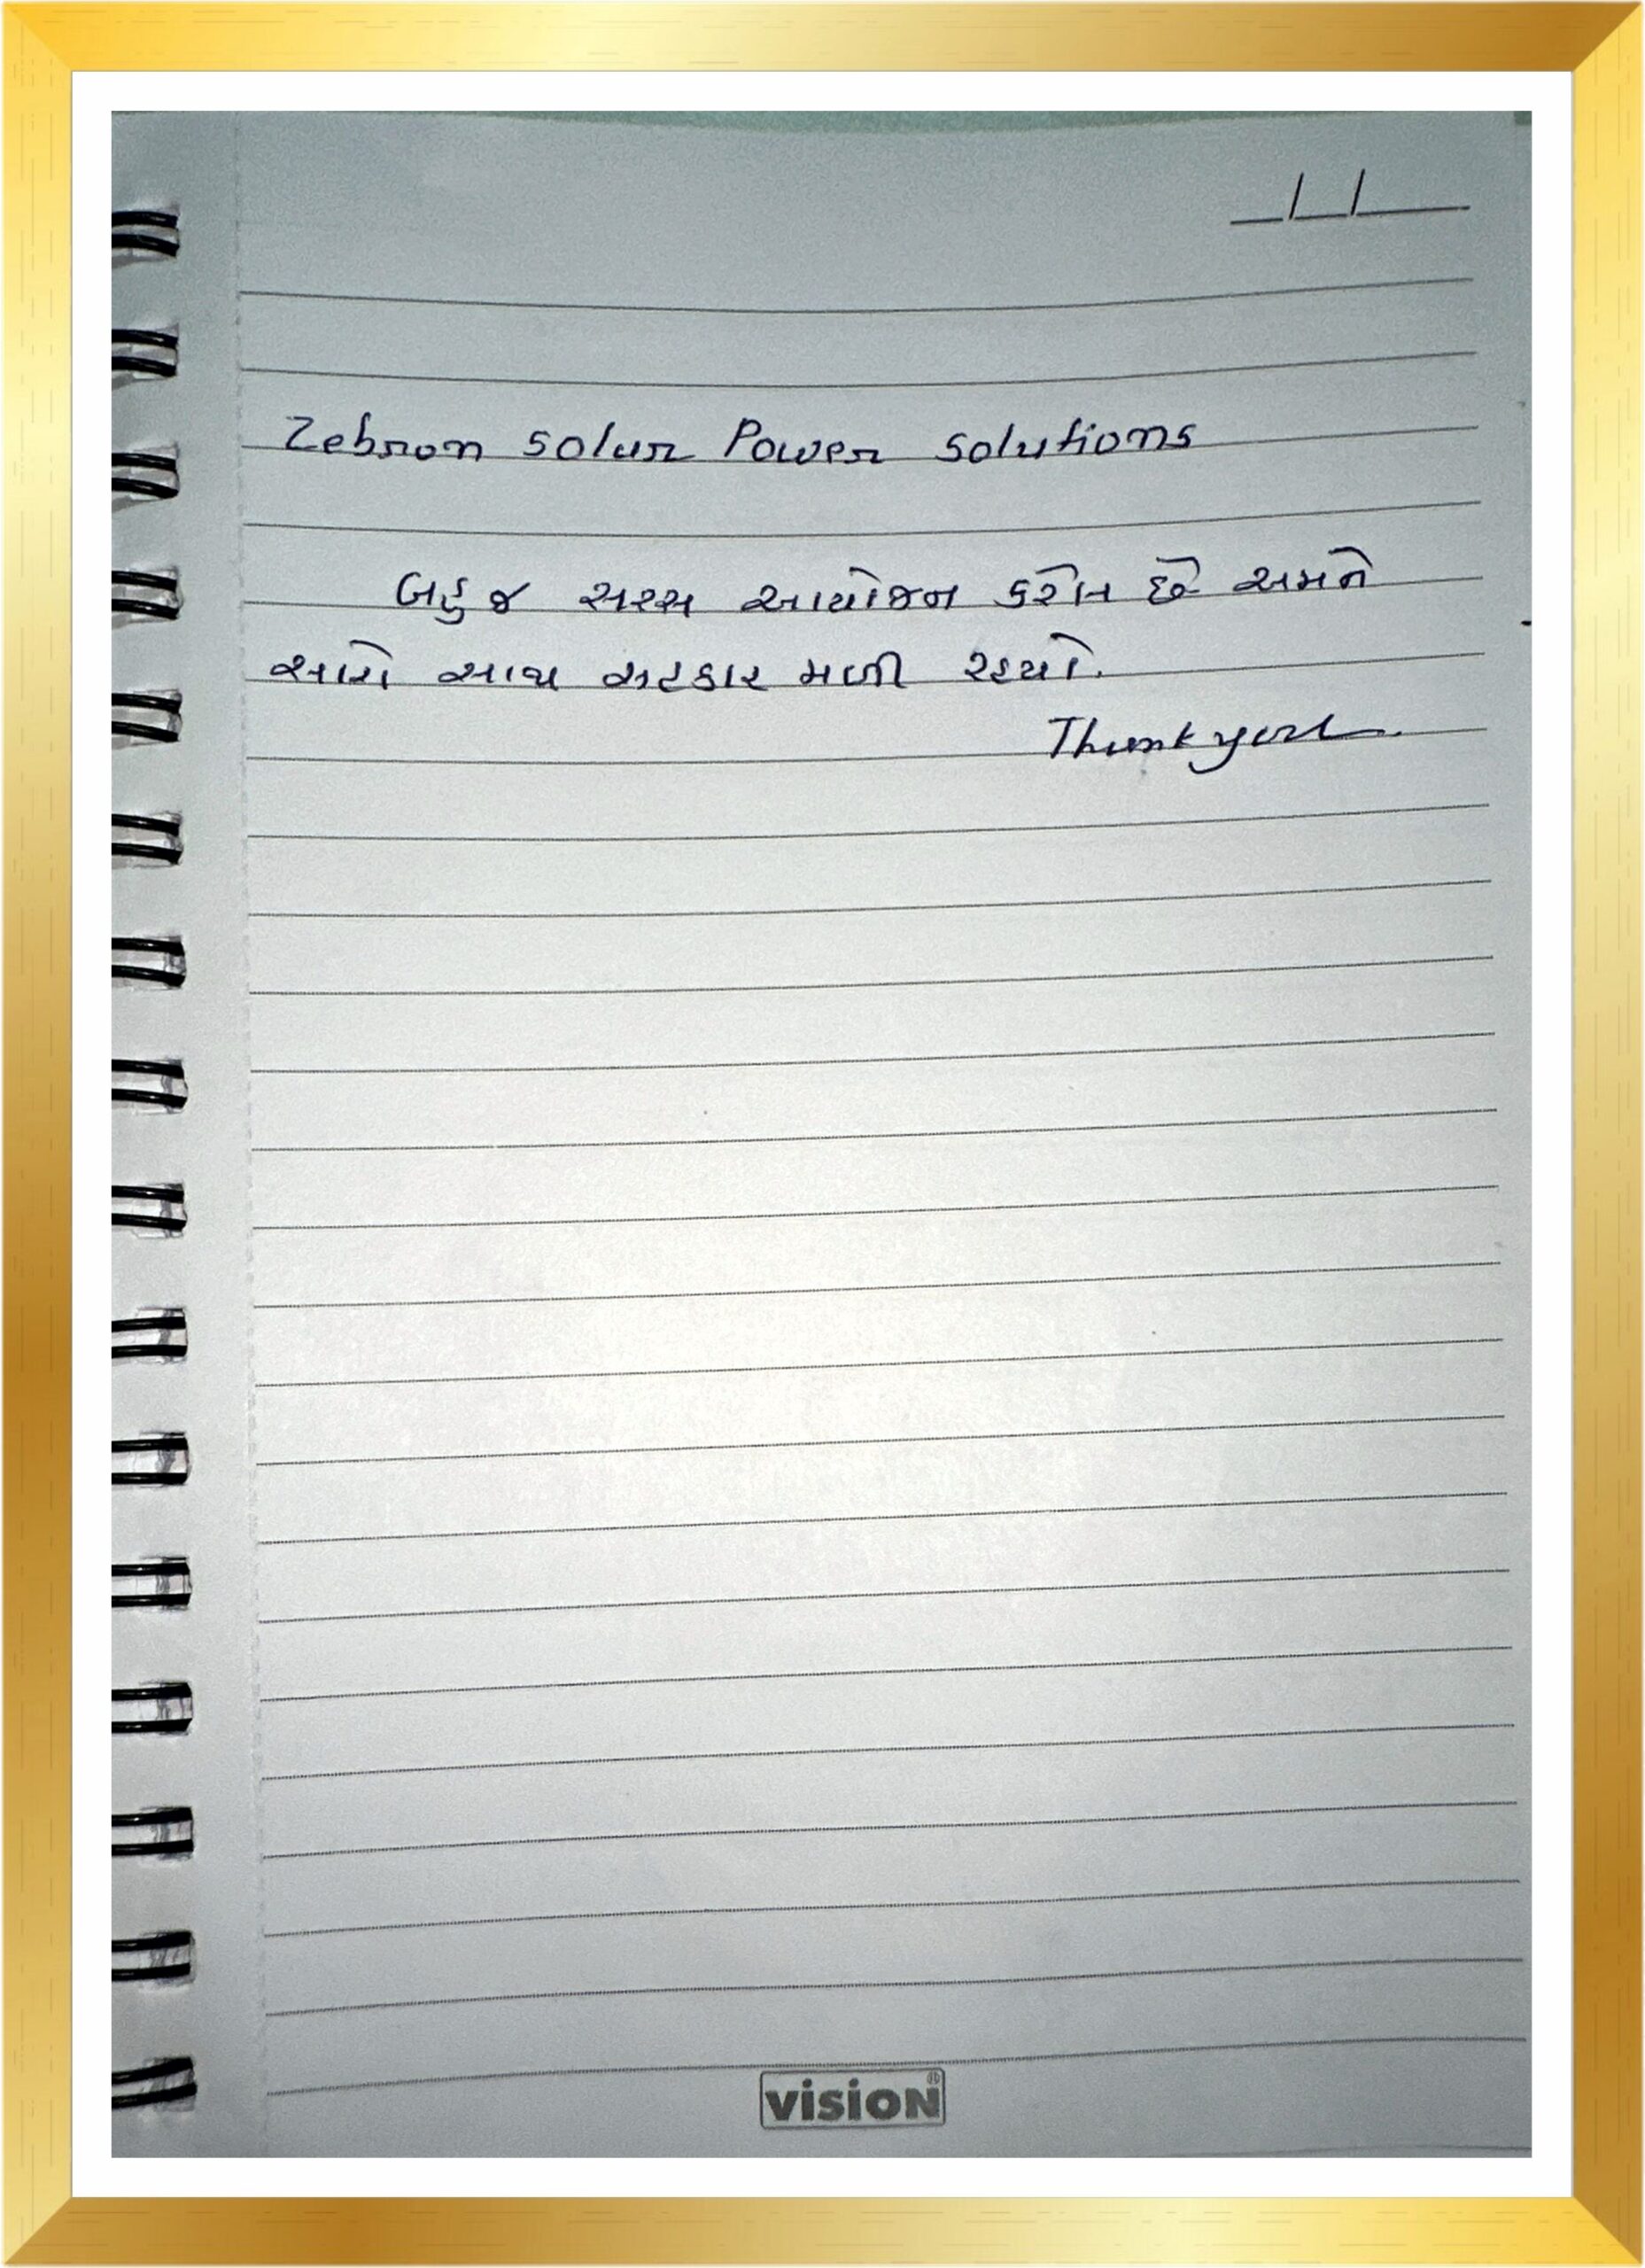 __/__/____
Zebron Solar Power Solutions
બહુ જ સરસ આયોજન કરેલ છે અમને
સારો સાથ સહકાર મળી રહ્યો.
Thank you
VISION®